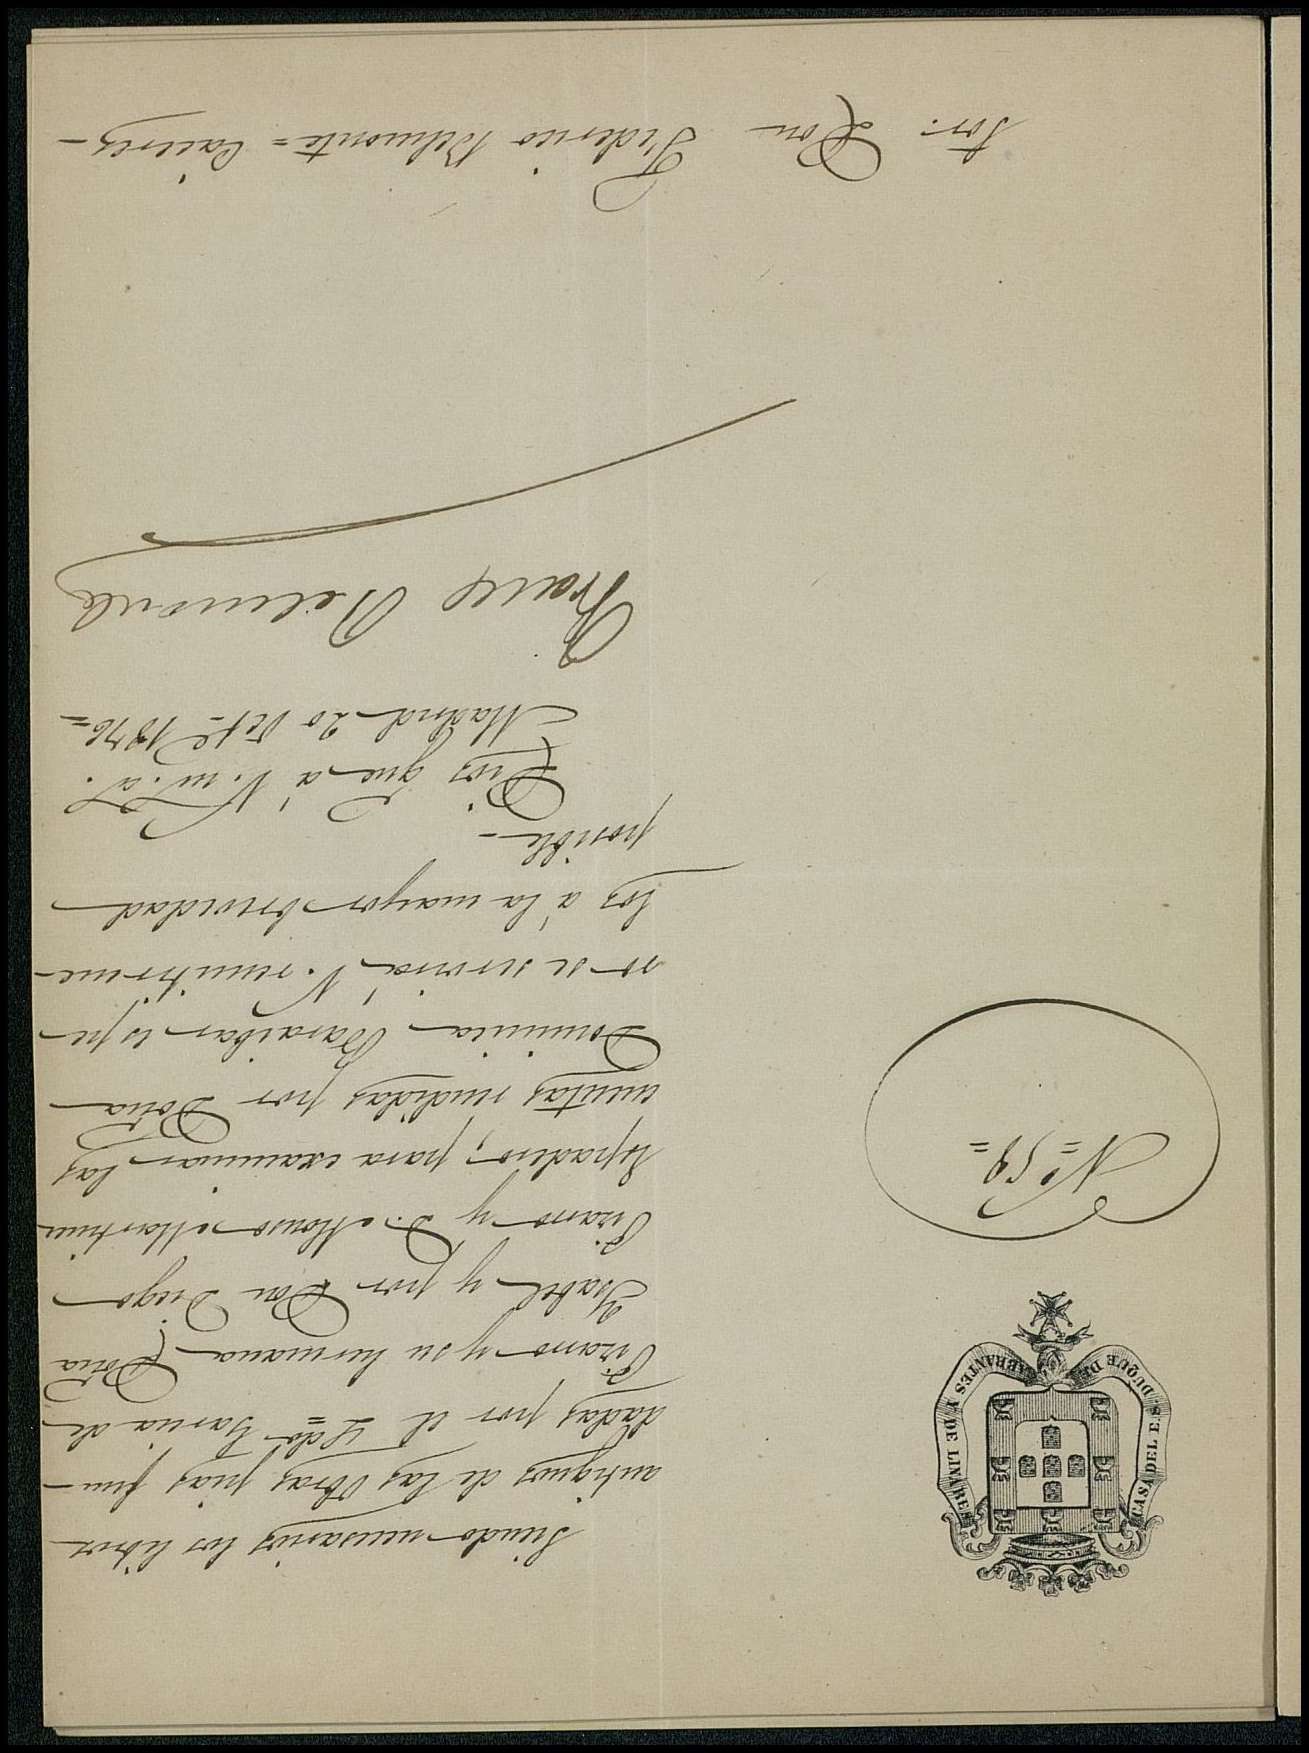 CASA DEL E.S. DUQUE DE ABRANTES Y DE LINARES
Nº 59=
Siendo necesarios los libros
antiguos de las Obras pias fun-
dadas por el Lcdo= Garcia de
Ovano y su hermana Doña
Isabel y por Don Diego
Ovano y D. Alonso Martin
Espadero, para examinar las
cuentas rendidas por Doña
Dominica Baraibar, espe-
ro se servirá V. remitirme-
los á la mayor brevedad
posible-
Dios gue á V. m. a.
Madrid 20 Oct= 1876=
Franco Belmonte
Sor. Don Federico Belmonte = Caceres-